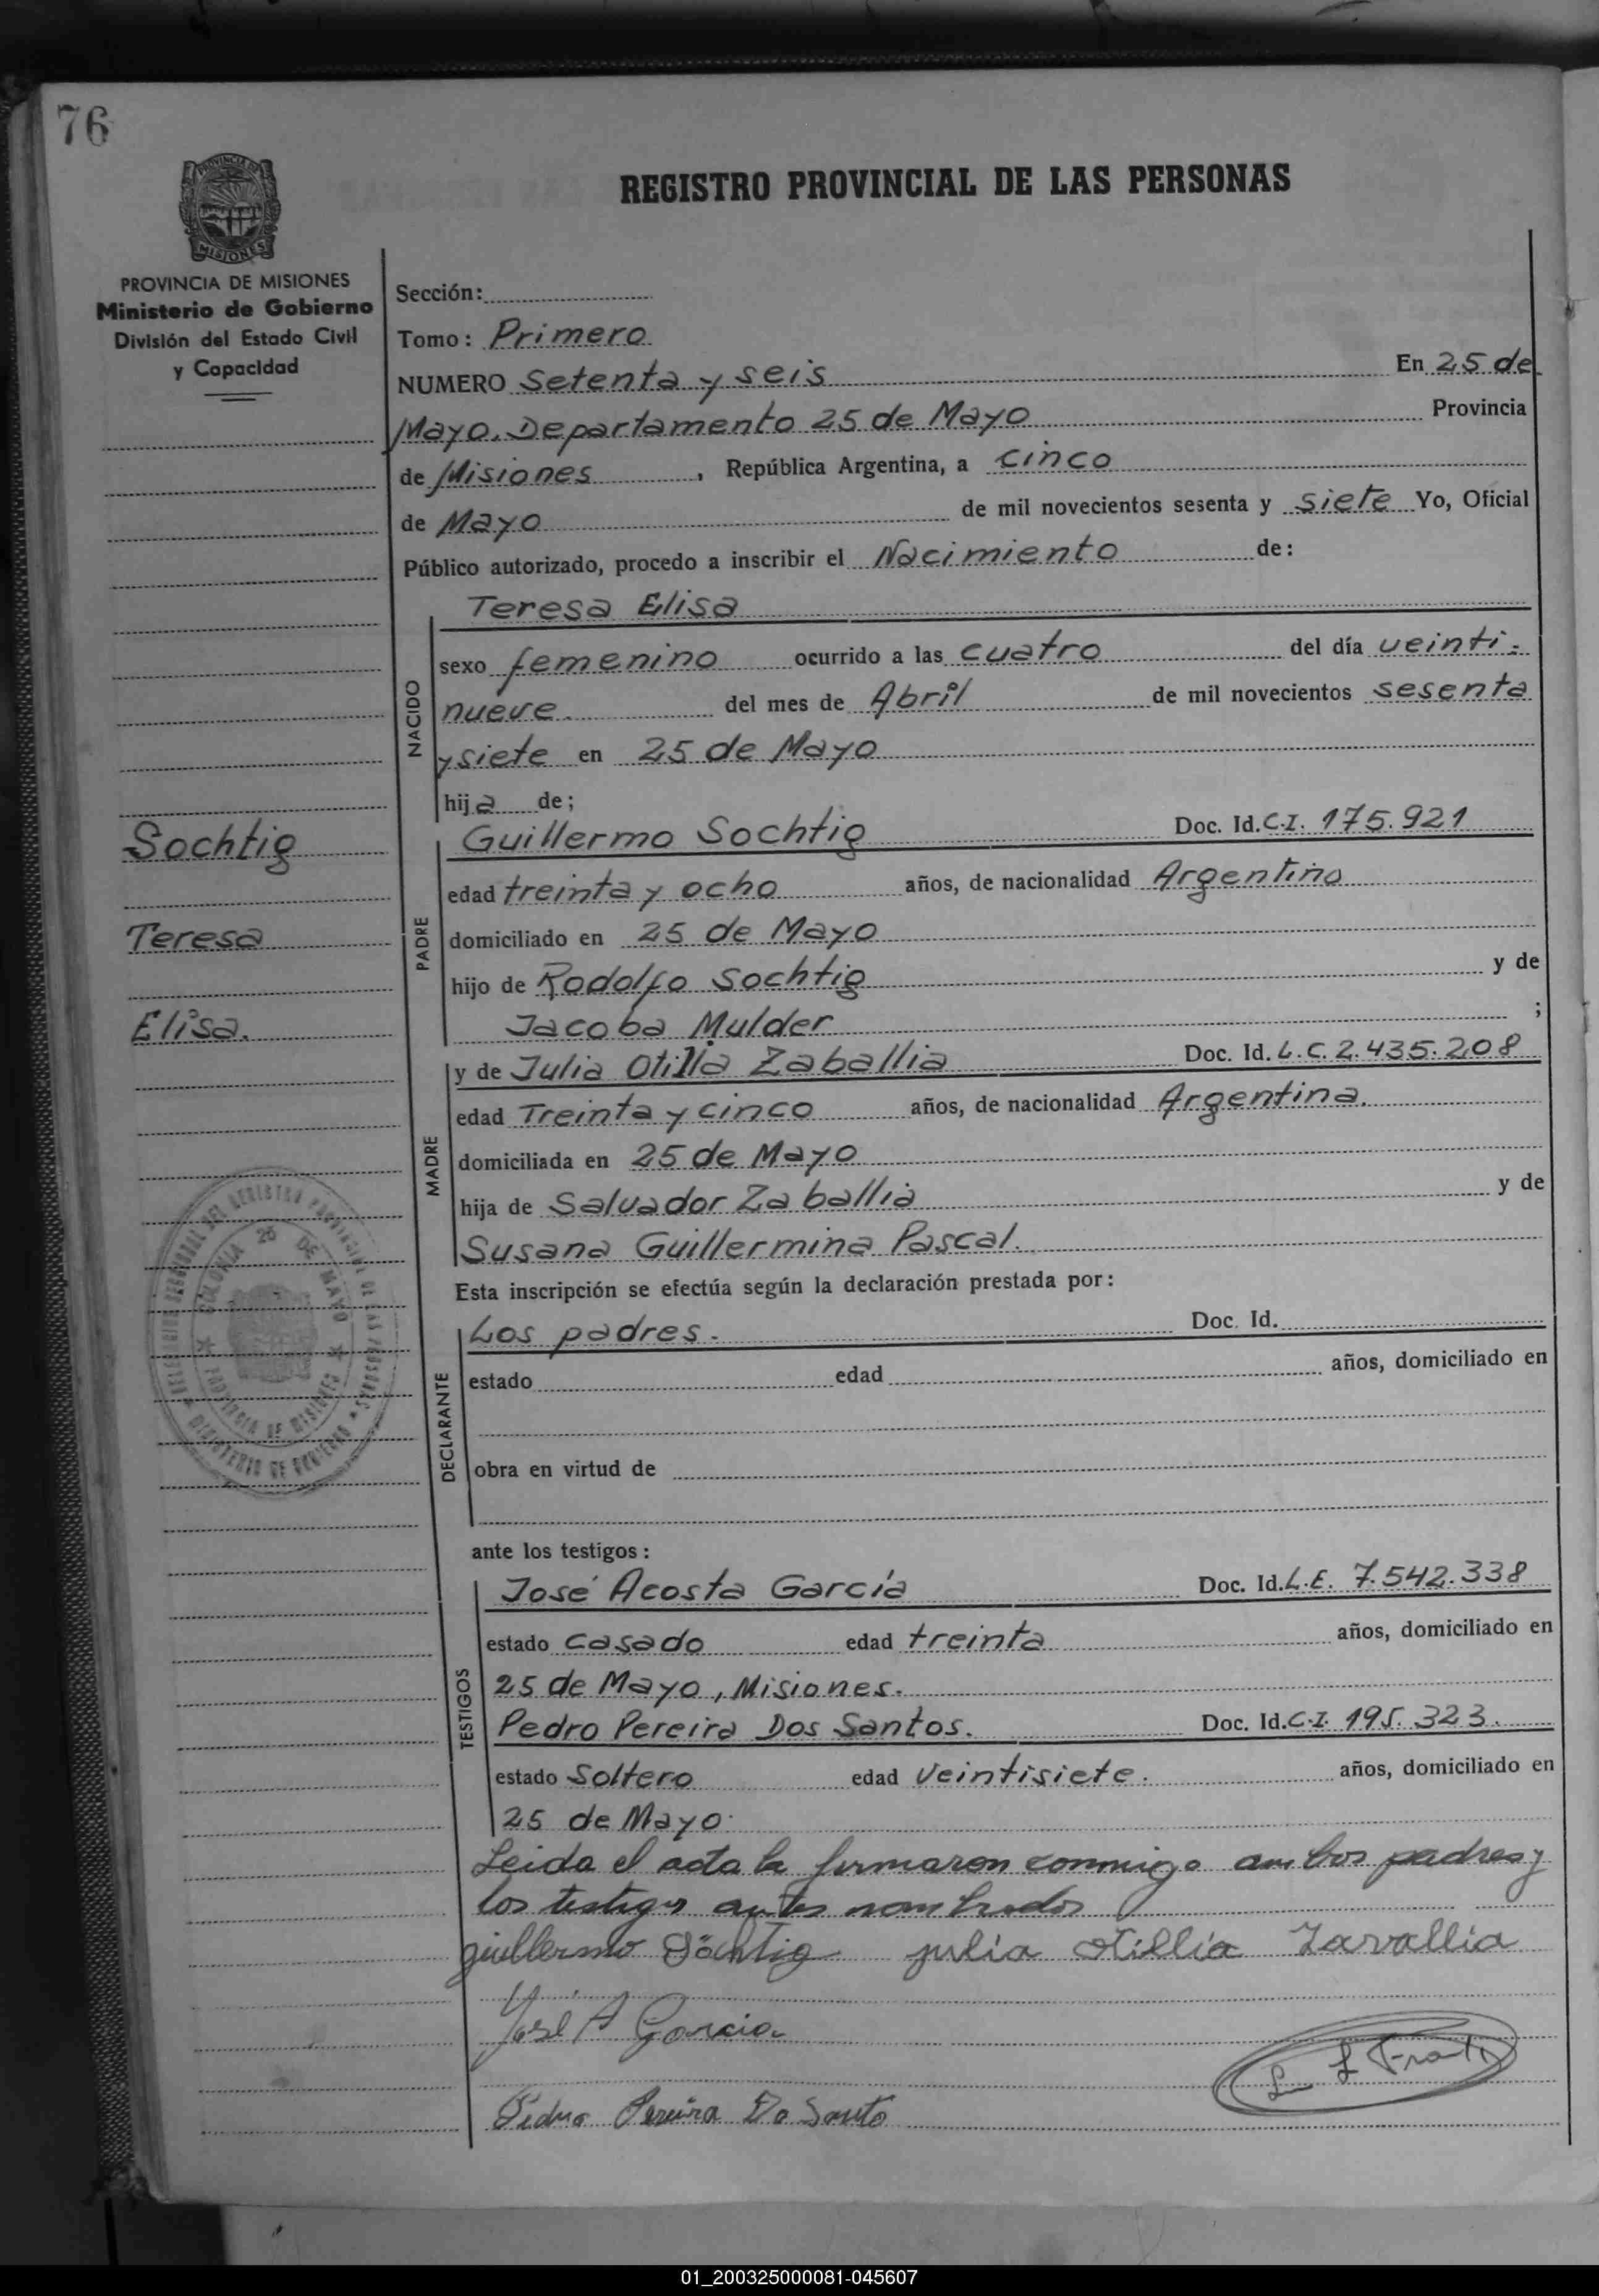 76
PROVINCIA DE
MISIONES
REGISTRO PROVINCIAL DE LAS PERSONAS
PROVINCIA DE MISIONES
Ministerio de Gobierno
División del Estado Civil
y Capacidad
Sección:
Tomo: Primero
NUMERO Setenta y seis En 25 de
Mayo, Departamento 25 de Mayo Provincia
de Misiones, República Argentina, a cinco
de Mayo de mil novecientos sesenta y siete Yo, Oficial
Público autorizado, procedo a inscribir el Nacimiento de:
NACIDO
Teresa Elisa
sexo femenino ocurrido a las cuatro del día veinti-
nueve. del mes de Abril de mil novecientos sesenta
y siete en 25 de Mayo
hija de;
Sochtig
Teresa
Elisa.
PADRE
Guillermo Sochtig Doc. Id. C.I. 175.921
edad treinta y ocho años, de nacionalidad Argentino
domiciliado en 25 de Mayo
hijo de Rodolfo Sochtig y de
Jacoba Mulder ;
MADRE
y de Julia Otilia Zaballia Doc. Id. L.C. 2.435.208
edad Treinta y cinco años, de nacionalidad Argentina.
domiciliada en 25 de Mayo
hija de Salvador Zaballia y de
Susana Guillermina Pascal.
Esta inscripción se efectúa según la declaración prestada por:
DECLARANTE
Los padres. Doc. Id.
estado edad años, domiciliado en
obra en virtud de
COLONIA 25 DE MAYO
PROVINCIA DE MISIONES
MINISTERIO DE GOBIERNO
ante los testigos:
TESTIGOS
José Acosta García Doc. Id. L.E. 7.542.338
estado casado edad treinta años, domiciliado en
25 de Mayo, Misiones.
Pedro Pereira Dos Santos. Doc. Id. C.I. 195.323.
estado Soltero edad veintisiete. años, domiciliado en
25 de Mayo.
Leida el acta la firmaron conmigo ambos padres y
los testigos antes nombrados
guillermo Söchtig julia otillia Zavallia
José A Garcia
Pedro Pereira Do Santo
01_200325000081-045607